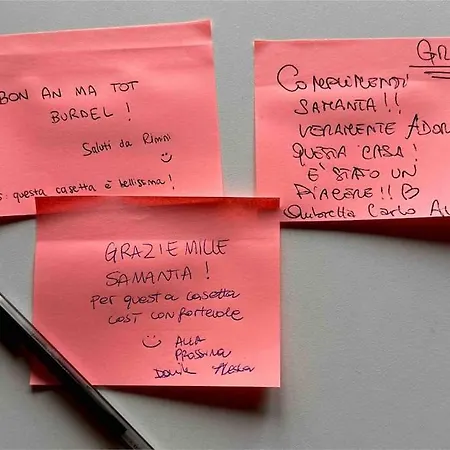 BON AN MA TOT
BURDEL!
Saluti da Rimini
questa casetta è bellissima!
GR
COMPLIMENTI
SAMANTA!!
VERAMENTE ADOR
QUESTA CASA!
È STATO UN
PIACERE!!
Carlo
GRAZIE MILLE
SAMANTA!
per questa casetta
così confortevole
ALLA
PROSSIMA